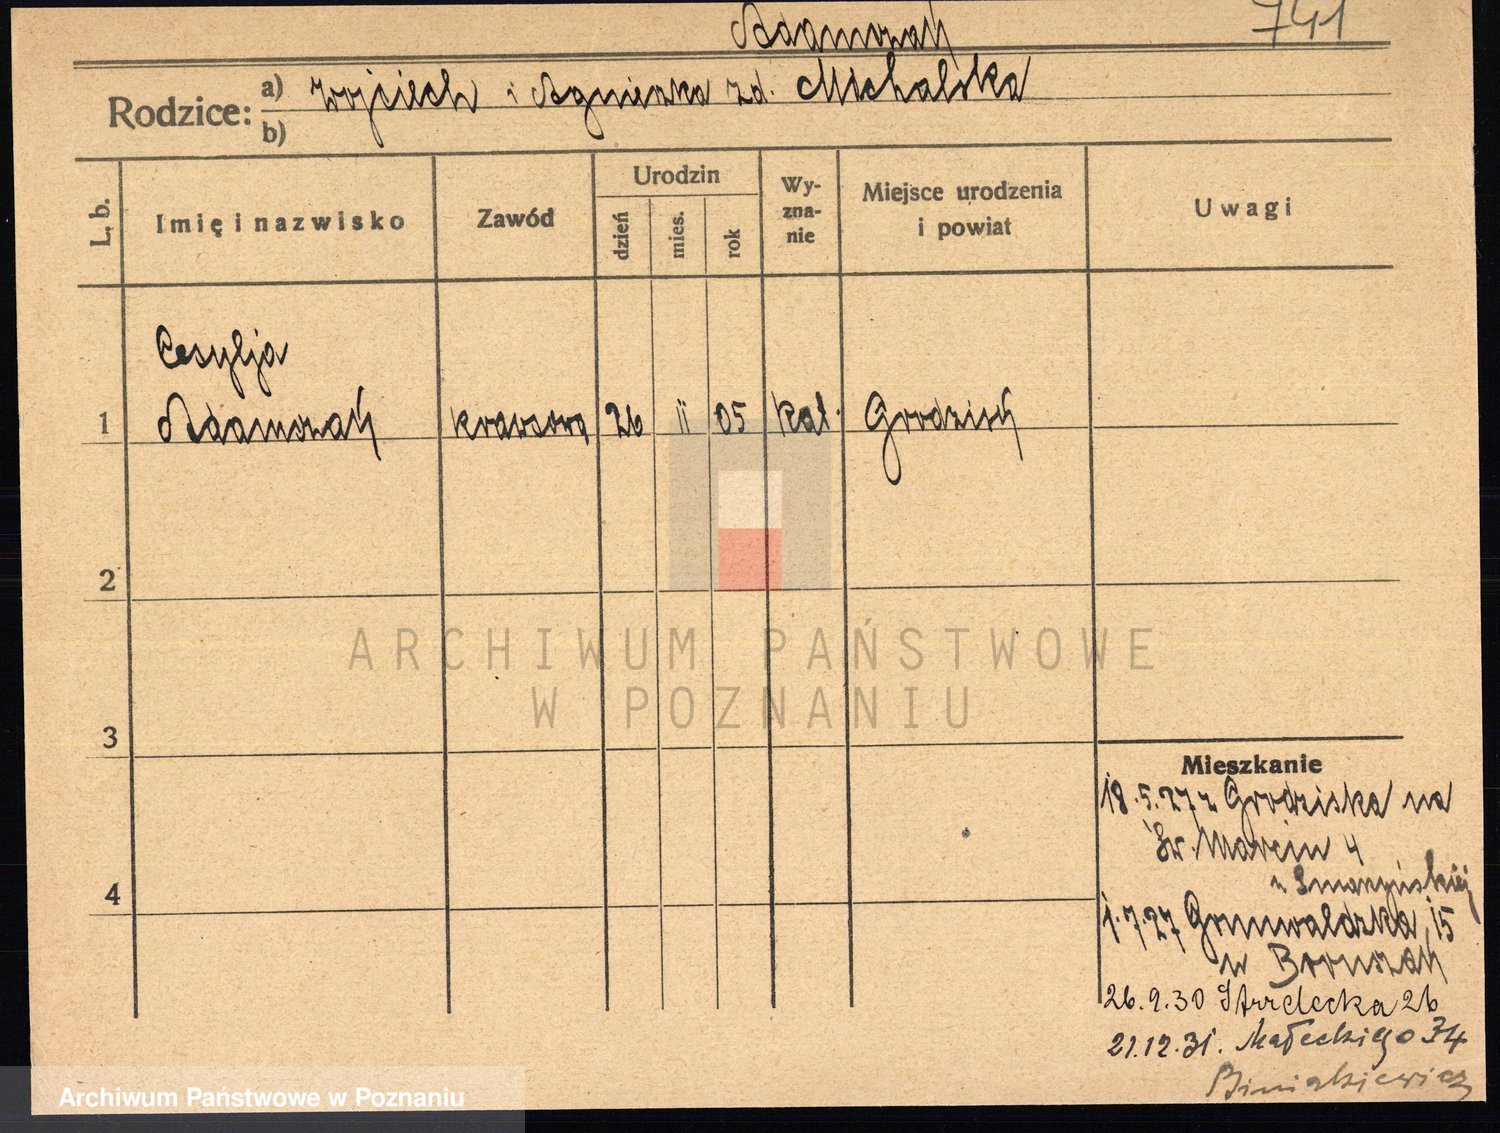 Adamczak
741
Rodzice: a) Wojciech i Agnieszka zd. Michalska
b)
L. b.
Imię i nazwisko
Zawód
Urodzin
dzień
mies.
rok
Wy-
zna-
nie
Miejsce urodzenia
i powiat
Uwagi
Cesylja
1 Adamczak krawcowa 26 II 05 kat. Grodzisk
2
3
4
ARCHIWUM PAŃSTWOWE
W POZNANIU
Mieszkanie
18.5.27 z Grodziska na
Św. Marcin 4
1.7.27 Grunwaldzka 15
26.9.30 Strzelecka 26
21.12.31. Małeckiego 34
Archiwum Państwowe w Poznaniu